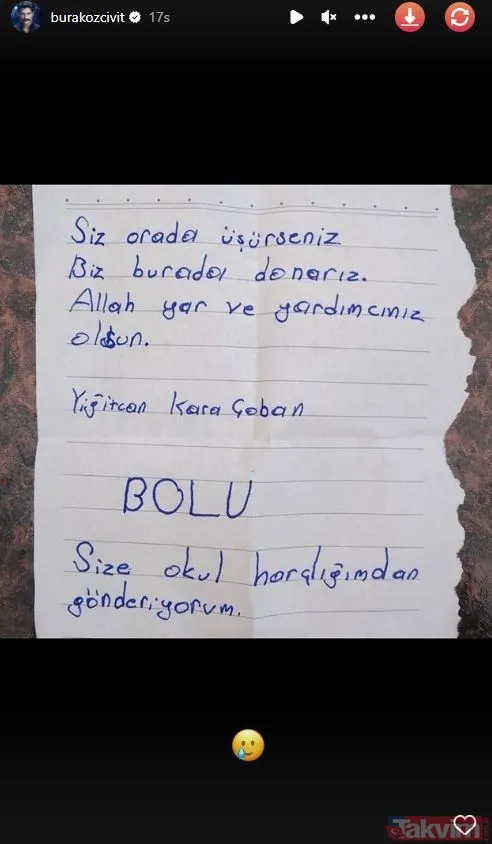 burakozcivit 17s
Siz orada üşürseniz
Biz burada donarız.
Allah yar ve yardımcınız
olsun.
Yiğitcan Kara Çoban
BOLU
Size okul harçlığımdan
gönderiyorum.
Takvim